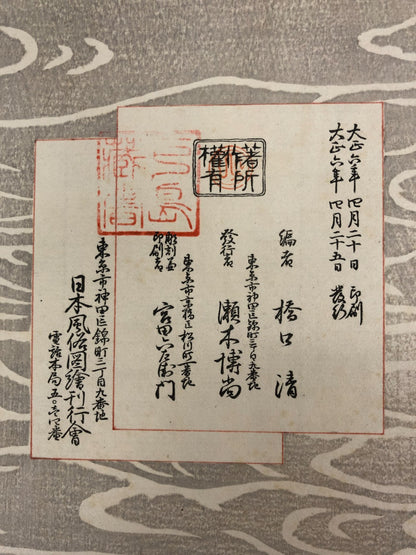 大正六年四月二十日 印刷
大正六年四月二十五日 發行
編者 橋口清
東京市神田区錦町三丁目九番地
發行者 瀬木博尚
著作所
權有
東京市京橋区松川町一番地
彫刻並
印刷者 宮田六左衛門
東京市神田区錦町三丁目九番地
日本風俗図繪刊行會
電話本局